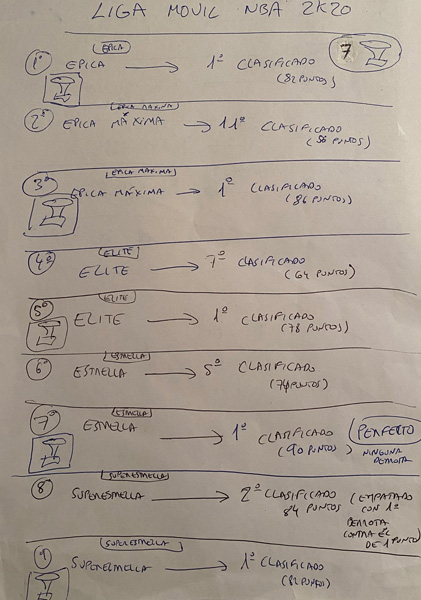 LIGA MOVIL NBA 2K20
7
EPICA
1º EPICA → 1º CLASIFICADO
(82 PUNTOS)
EPICA MAXIMA
2º EPICA MÁXIMA → 11º CLASIFICADO
(56 PUNTOS)
EPICA MAXIMA
3º EPICA MÁXIMA → 1º CLASIFICADO
(86 PUNTOS)
ELITE
4º ELITE → 7º CLASIFICADO
(64 PUNTOS)
ELITE
5º ELITE → 1º CLASIFICADO
(78 PUNTOS)
ESTRELLA
6º ESTRELLA → 5º CLASIFICADO
(74 PUNTOS)
ESTRELLA
7º ESTRELLA → 1º CLASIFICADO PERFECTO
(90 PUNTOS) NINGUNA
DERROTA
SUPERESTRELLA
8º SUPERESTRELLA → 2º CLASIFICADO (EMPATADO
84 PUNTOS CON 1º
DERROTA
CONTRA ÉL
DE 1 PUNTO)
SUPERESTRELLA
SUPERESTRELLA → 1º CLASIFICADO
(82 PUNTOS)